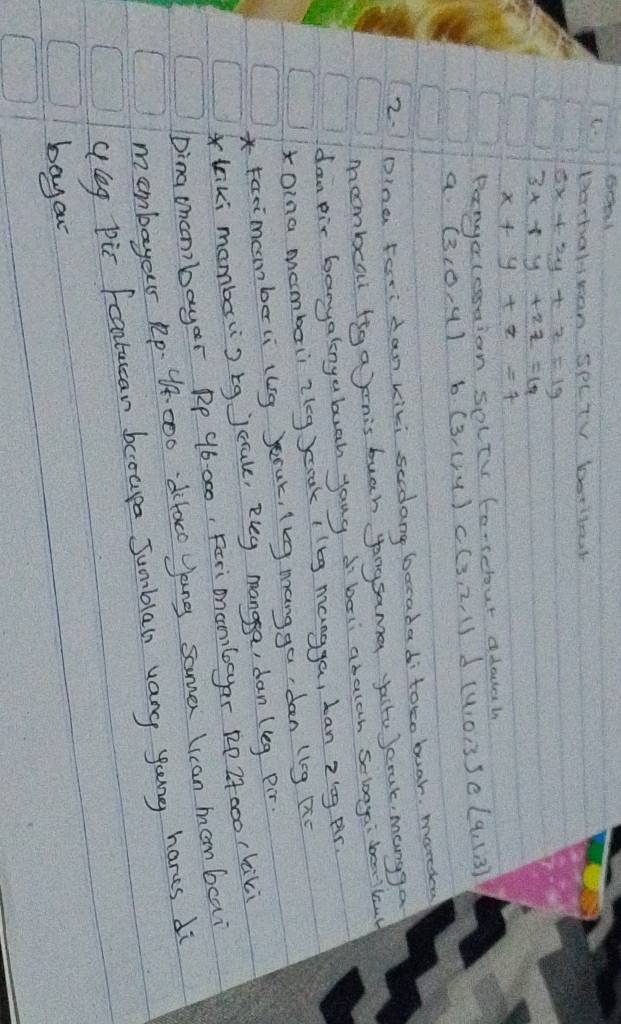 Soal
1. Perhatikan SPLTV berikut
5x + 3y + z = 19
3x + y + 2z = 19
x + y + z = 7
Penyelesaian SPLTV tersebut adalah
a. (3,0,4) b (3,1,4) c (3,2,1) d (4,0,3) e (4,1,3)
2. Dina Fari dan Kiki sedang berada di toko buah. mereka
membeli tiga jenis buah yang sama yaitu jeruk, mangga
dan pir banyaknya buah yang di beli adalah sebagai berikut
* Dina membeli 2 kg jeruk, 1 kg mangga, dan 2 kg pir.
* Fari membeli 1 kg jeruk, 1 kg mangga, dan 1 kg pir
* kiki membeli kg jeruk, 2 kg mangga, dan 1 kg pir.
Dina membayar Rp 46.000, Fari membayar Rp 27.000, kiki
membayar Rp. .000 .ditoko yang sama Ican membeli
4 kg pir Tentukan berapa Jumblah uang yang harus di
bayar